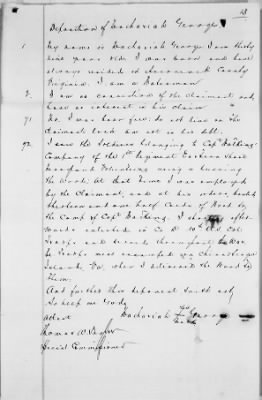 Deposition of Zachariah George
1 My name is Zachariah George. I am thirty
nine years old. I was born and have
always resided in Accomack County
Virginia. I am a
2. I am no connection of the Claimant and
have no interest in his claim
71 No. I was born free. do not live on the
Claimants land am not in his debt.
72 I saw the Soldiers belonging to Capt
Company of the 1st Regiment Eastern Shore
Maryland Volunteers using & burning
the Wood. At that time I was employed
by the Claimant, and at his order, hauled
thirteen and one half Cords of Wood to
the Camp of Capt I after-
wards enlisted in Co 10th U.S. Col.
Troops and served throughout the War
The Troops were encamped on Chincoteague
Island Va, when I delivered the Wood to
them.
And further this deponent saith not,
So help me God,
Attest Zachariah his George
mark
Thomas W.
Special Commissioner